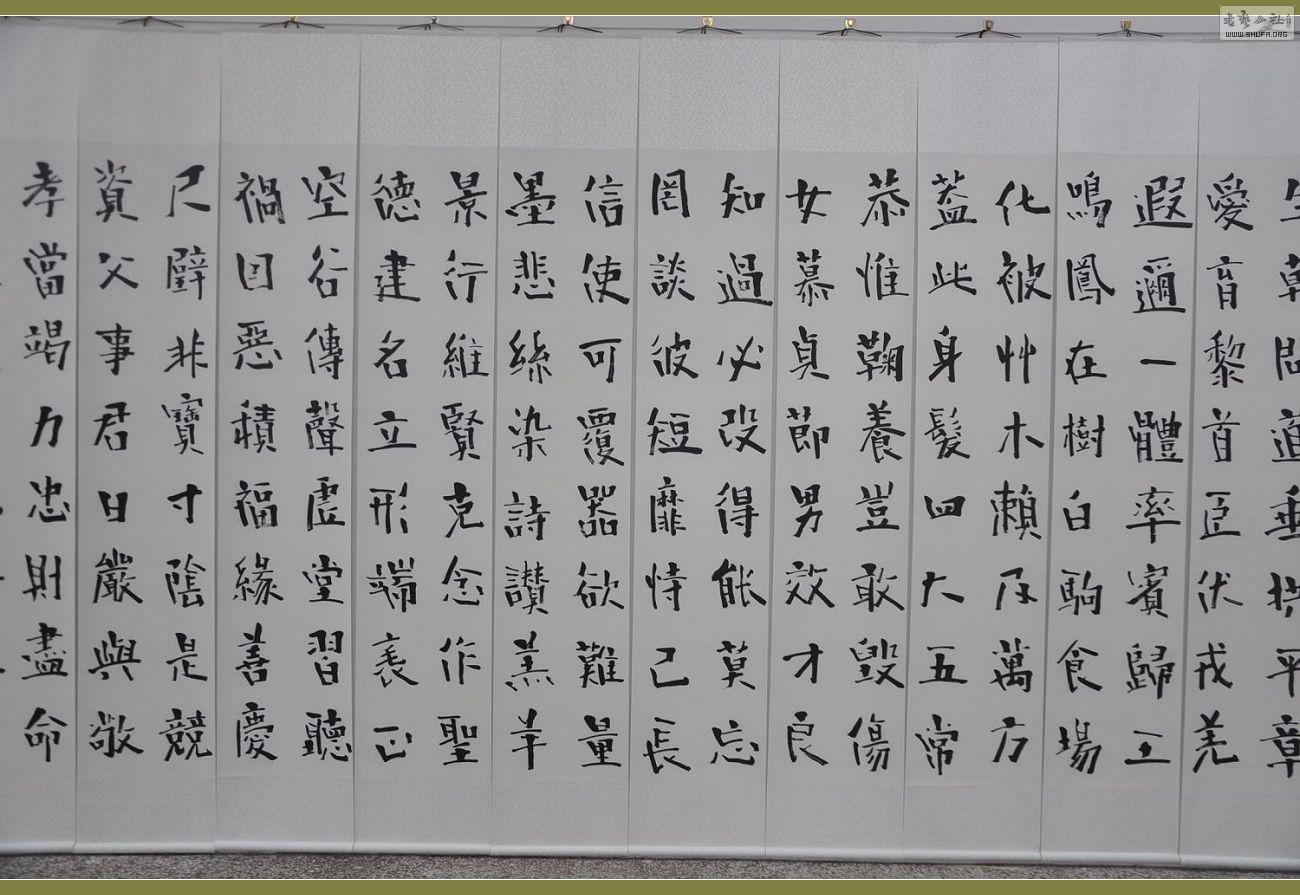 坐朝問道垂拱平章
愛育黎首臣伏戎羌
遐邇一體率賓歸王
鳴鳳在樹白駒食場
化被艸木賴及萬方
蓋此身髮四大五常
恭惟鞠養豈敢毀傷
女慕貞節男效才良
知過必改得能莫忘
罔談彼短靡恃己長
信使可覆器欲難量
墨悲絲染詩讚羔羊
景行維賢克念作聖
德建名立形端表正
空谷傳聲虛堂習聽
禍因惡積福緣善慶
尺璧非寶寸陰是競
資父事君曰嚴與敬
孝當竭力忠則盡命
书艺公社
WWW.SHUFA.ORG